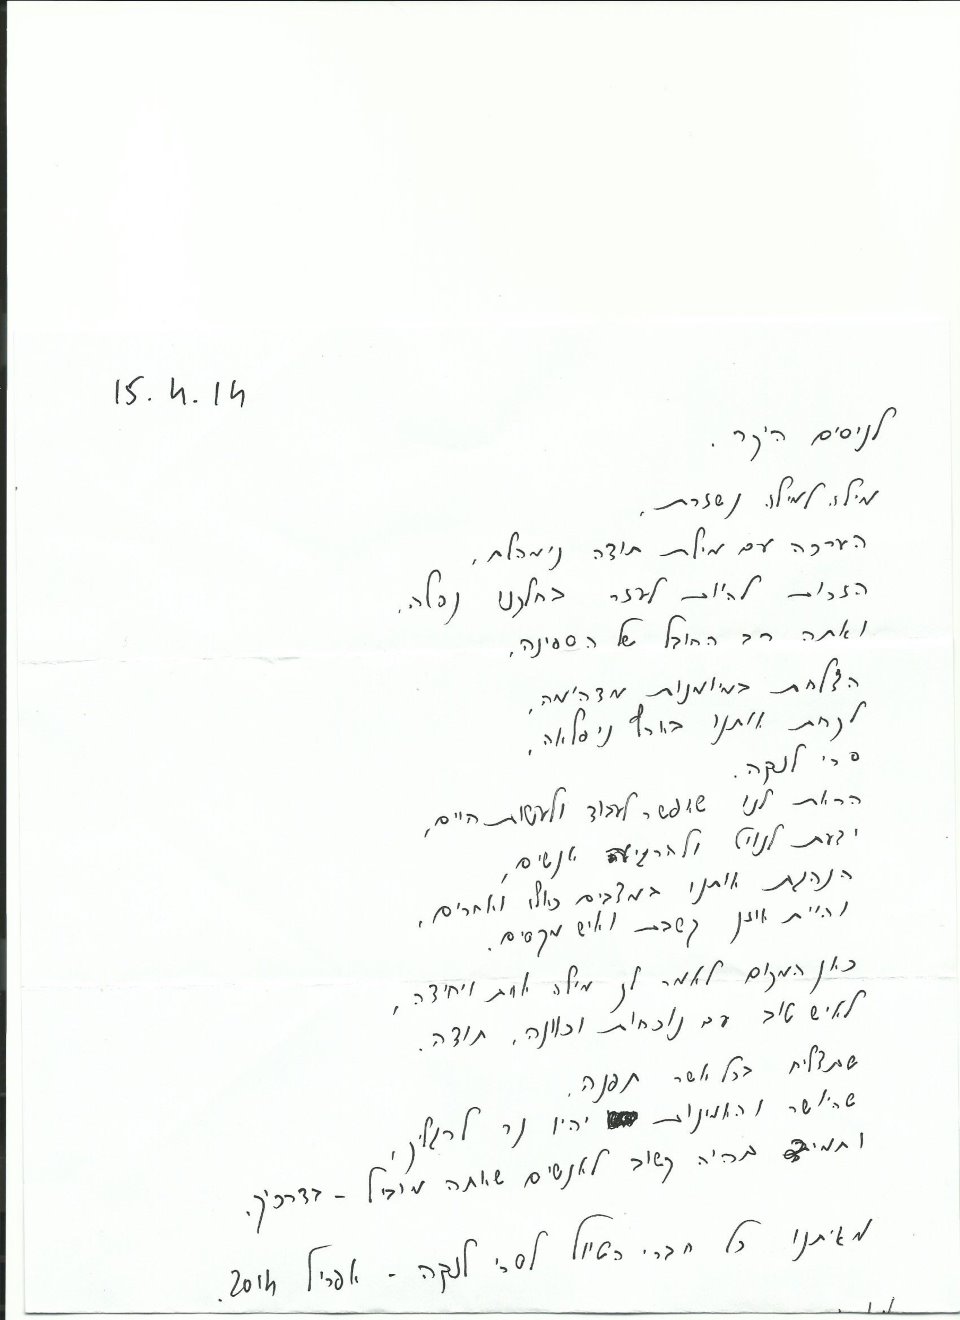 15.4.14
לניסים היקר.
מילה למילה נשזרת,
הערכה עם מילת תודה נימהלת,
הזכות להיות לעזר בחלקנו נפלה,
ואתה רב החובל של הספינה,
הצלחת במיומנות מדהימה,
לקחת אותנו בארץ ניפלאה,
סרי לנקה.
הראת לנו שאפשר לעבוד ולעשות חיים,
ידעת לנווט ולהרגיע אנשים,
הנהגת אותנו במצבים כאלו ואחרים,
והיית אוזן קשבת ואיש מקסים.
כאן המקום לאמר לך מילה אחת ויחידה,
לאיש טוב עם נוכחות וכוונה, תודה.
שתצליח בכל אשר תפנה,
שהיושר והאמינות יהיו נר לרגליך,
ותמיד תהיה קשוב לאנשים שאתה מוביל - בדרכיך.
מאיתנו כל חברי הטיול לסרי לנקה - אפריל 2014.